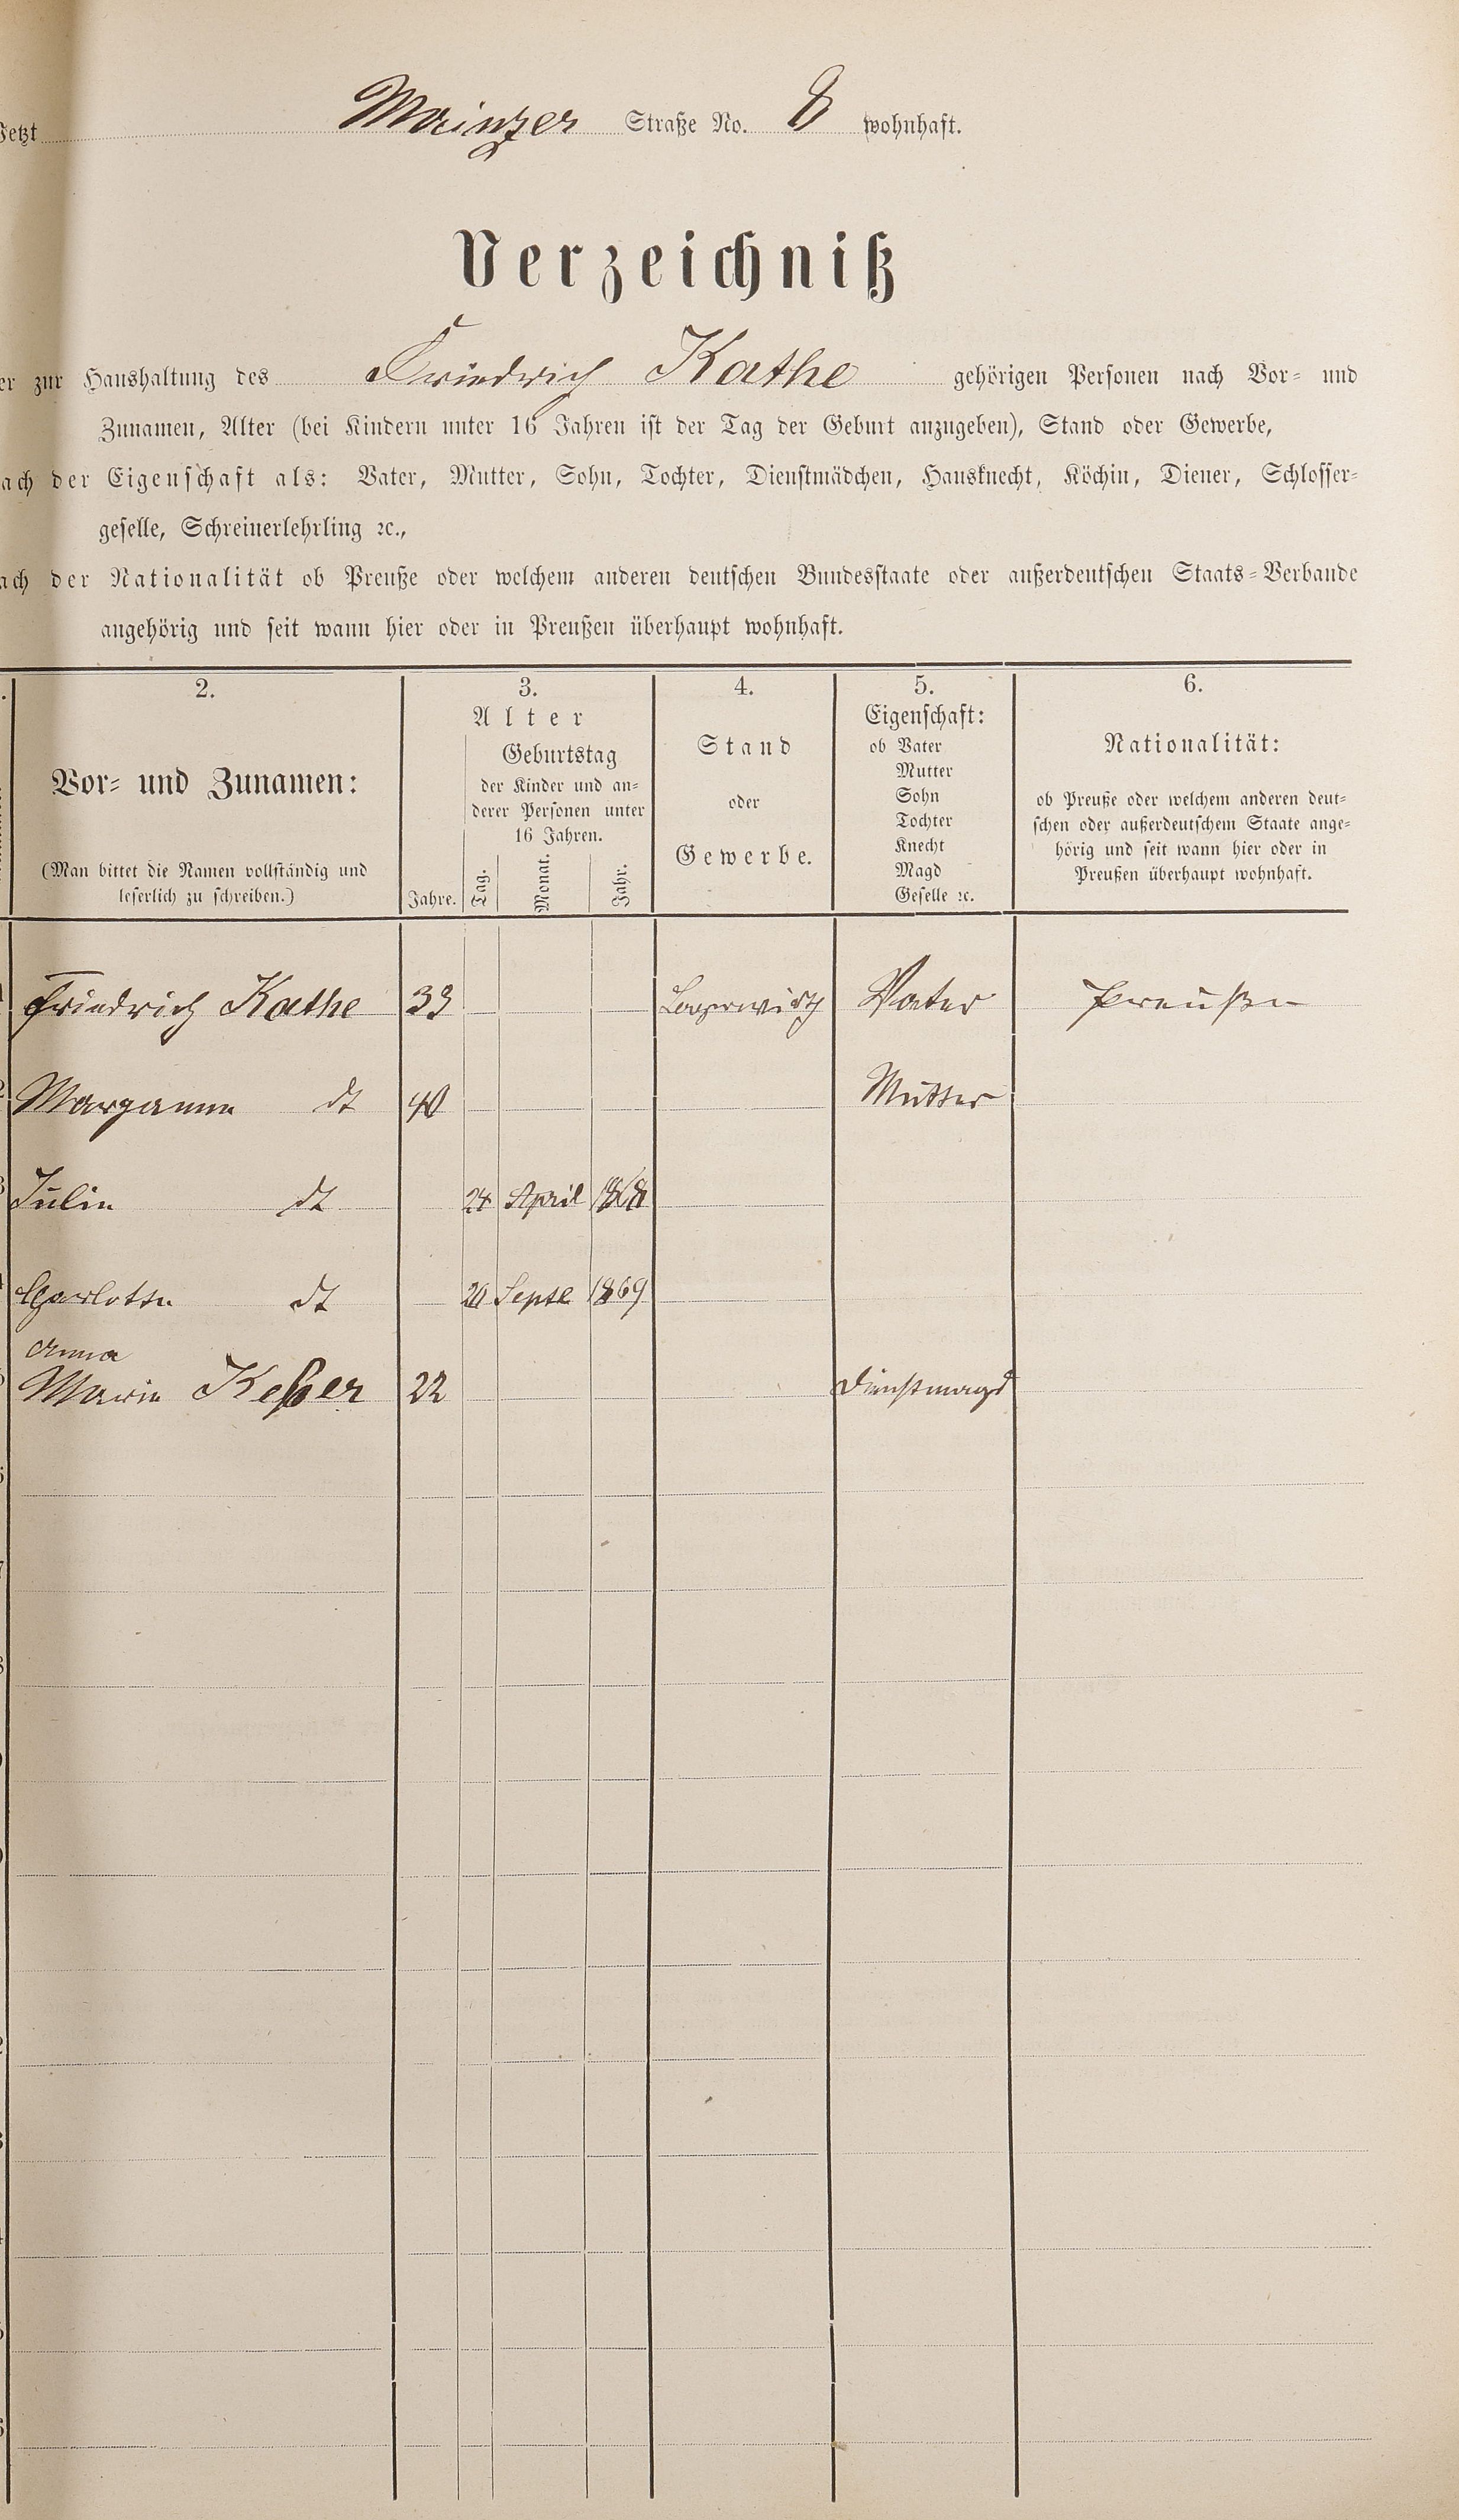 Jetzt Mainzer Straße No. 8 wohnhaft.
Verzeichniß
er zur Haushaltung des Friedrich Kathe gehörigen Personen nach Vor- und
Zunamen, Alter (bei Kindern unter 16 Jahren ist der Tag der Geburt anzugeben), Stand oder Gewerbe,
ach der Eigenschaft als: Vater, Mutter, Sohn, Tochter, Dienstmädchen, Hausknecht, Köchin, Diener, Schlosser-
geselle, Schreinerlehrling ꝛc.,
ach der Nationalität ob Preuße oder welchem anderen deutschen Bundesstaate oder außerdeutschen Staats-Verbande
angehörig und seit wann hier oder in Preußen überhaupt wohnhaft.
2.
Vor- und Zunamen:
(Man bittet die Namen vollständig und
leserlich zu schreiben.)
3.
Alter
Jahre.
Geburtstag
der Kinder und an-
derer Personen unter
16 Jahren.
Tag. Monat. Jahr.
4.
Stand
oder
Gewerbe.
5.
Eigenschaft:
ob Vater
Mutter
Sohn
Tochter
Knecht
Magd
Geselle ꝛc.
6.
Nationalität:
ob Preuße oder welchem anderen deut-
schen oder außerdeutschem Staate ange-
hörig und seit wann hier oder in
Preußen überhaupt wohnhaft.
Friedrich Kathe 33 Vater Preußen
dt 40 Mutter
Julie dt 24 April 1868
Charlotte dt 20 Septe 1869
Anna
Marie Keßer 22 Dienstmagd